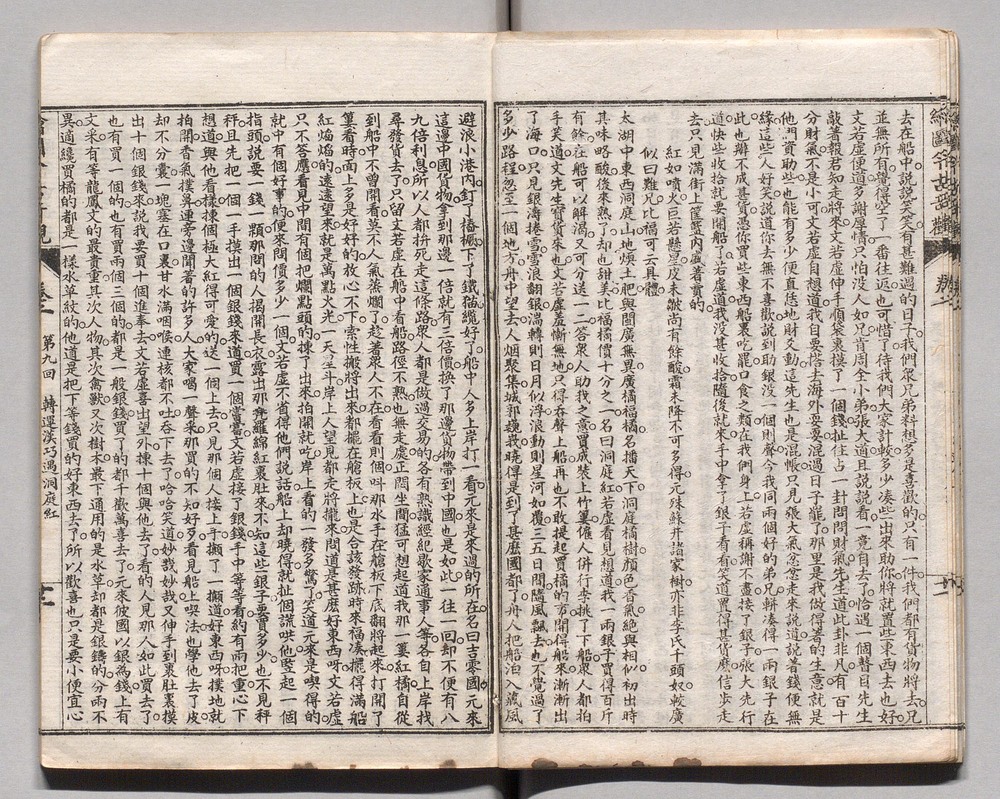 去在船中說說笑笑有甚難過的日子我們眾兄弟料想多是喜歡的只有一件我們都有貨物將去兄
並無所有覺得空了一番往返也可惜了待我們大家計較多少湊些出來助你將就置些東西去也好
文若虛便道多謝厚情只怕沒人如兄肯周全小弟張大道且說說看一竟自去了恰遇一個瞽目先生
敲着報君知走將來文若虛伸手順袋裏摸了一個錢扯住占一卦問問財氣先生道此卦非凡有百十
分財氣不是小可文若虛自想道我自要搭去海外耍耍混過日子罷了那里是我做得着的生意就是
他們資助些也能有多少便直恁地財爻動這先生也是混帳只見張大氣忿忿走來說道說着錢便無
緣這些人好笑說道你去無不喜歡說到助銀沒一個則聲今我同兩個好的弟兄輧湊得一兩銀子在
此也辦不成甚貨憑你買些東西船裏吃罷口食之類在我們身上若虛稱謝不盡接了銀子張大先行
道快些收拾就要開船了若虛道我沒甚收拾隨後就來手中拿了銀子看看笑道置得甚貨麼信步走
去只見滿街上筐籃內盛着賣的
紅如噴火巨若懸星皮未皺尚有餘酸霜未降不可多得元殊蘇井諸家樹亦非李氏千頭奴較廣
似曰難兄比福可云具體
太湖中東西洞庭山地煗土肥與閩廣無異廣橘福橘名播天下洞庭橘樹顏色香氣絕與相似初出時
其味略酸後來熟了却也甜美比福橘價十分之一名曰洞庭紅若虛看見想道我一兩銀子買得百斤
有餘在船可以解渴又可分送一二答眾人助我之意買成裝上竹簍僱人併行李挑了下船眾人都拍
手笑道文先生寶貨來也文若虛羞慚無地只得吞聲上船再也不敢提起買橘的事開得船來漸漸出
了海口只見銀濤捲雪雪浪翻銀湍轉則日月似浮浪動則星河如覆三五日間隨風飄去也不覺過了
多少路程忽至一個地方舟中望去人烟聚集城郭巍我曉得是到了甚麼國都了舟人把船泊入藏風
避浪小港內釘了樁橛下了鐵猫纜好了船中人多上岸打一看元來是來過的所在名曰吉零國元來
這邊中國貨物拿到那邊一倍就有三倍價換了那邊貨物帶到中國也是如此一往一回却不便有八
九倍利息所以人都拚死走這條路眾人都是做過交易的各有熟識經紀歇家通事人等各自上岸找
尋發貨去了只留文若虛在船中看船路徑不熟也無走處正悶坐間猛可想起道我那一簍紅橘自從
到船中不曾開看莫不人氣蒸爛了趁着眾人不在看看則個叫那水手在艙板下底翻將起來打開了
簍看時面上多是好好的放心不下索性搬將出來都擺在艙板上也是合該發跡時來福湊擺得滿船
紅焰焰的遠遠望來就是萬點火光一天星斗岸上人望見都走將攏來問道是甚麼好東西呀文若虛
只不答應看見中間有個把爛點頭的揀了出來拍開就吃岸上看的一發多驚了笑道元來是喫得的
就中有個好事的便來問價多少一個文若虛不省得他們說話船上却曉得就扯個謊哄他竪起一個
指頭說要一錢一顆那問的人揭開長衣露出那兜羅綿紅裹肚來不知這些銀子要買多少也不見秤
秤且先把一個一手摸出一個銀錢來道買一個嘗嘗文若虛接了銀錢手中等等看約有兩把重心下
想道與他看樣揀個極大紅得可愛的送一個上去只見那個人接上手擷了一擷道好東西呀撲地就
拍開香氣撲鼻連旁邊聞著的許多人大家喝一聲釆那買的不知好歹看見船上喫法也學他去了皮
却不分囊一塊塞在口裏甘水滿咽喉連核都不吐吞下去了哈哈笑道妙哉妙哉又伸手到裹肚裏摸
出十個銀錢來說我要買十個進奉去文若虛喜出望外揀十個與他去了看的人見那人如此買去了
也有買一個的也有買兩個三個的都是一般銀錢買了的都千歡萬喜去了元來彼國以銀為錢上有
文采有等龍鳳文的最貴重其次人物其次禽獸又次樹木最下通用的是水草却都是銀鑄的分兩不
異適纔買橘的都是一樣水草紋的他道是把下等錢買的好東西去了所以歡喜也只是要小便宜心
第九回 轉運漢巧遇洞庭紅